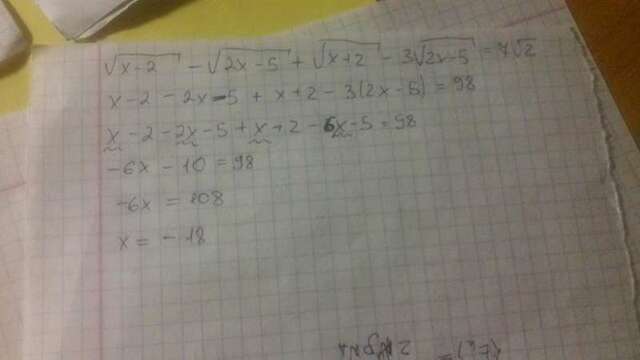 √x-2 - √2x-5 + √x+2 - 3√2x-5 = 7√2
x-2 - 2x-5 + x+2 - 3(2x-5) = 98
x-2-2x-5+x+2-6x-5=98
-6x-10=98
-6x = 108
x = -18